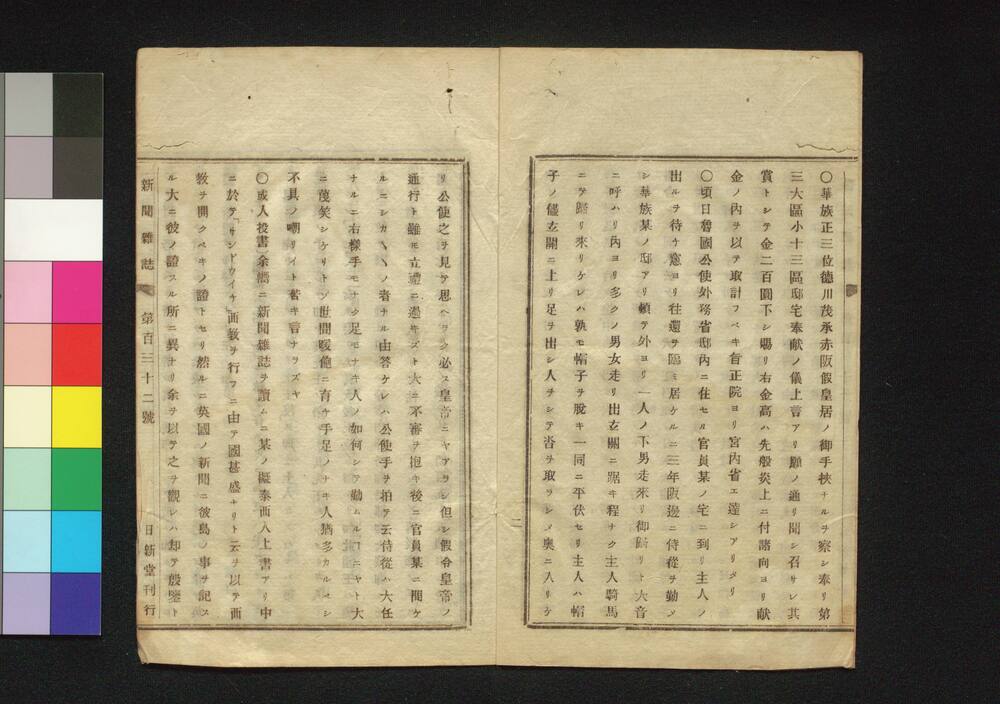 〇華族正三位德川茂承赤阪假皇居ノ御手狹ナルヲ察シ奉リ第
三大區小十三區邸宅奉献ノ儀上言アリ願ノ通リ聞シ召サレ其
賞トシテ金二百圓下シ賜リ右金高ハ先般炎上ニ付諸向ヨリ献
金ノ內ヲ以テ取計フベキ旨正院ヨリ宮內省エ達シアリタリ
〇頃日魯國公使外務省邸內ニ在セル官員某ノ宅ニ到リ主人ノ
出ルヲ待ケ窻ヨリ往還ヲ臨ミ居ケルニ三年阪邊ニ侍從ヲ勤メ
シ華族某ノ邸アリ頓テ外ヨリ一人ノ下男走來リ御歸リト大音
ニ呼ハリ內ヨリ多クノ男女走リ出玄關ニ踞キ程ナク主人騎馬
ニテ歸リ來リケレハ孰モ帽子ヲ脫キ一同ニ平伏セリ主人ハ帽
子ノ儘玄關ニ上リ足ヲ出シ人ヲシテ沓ヲ取ラシメ奧ニ入リケ
リ公使之ヲ見テ思ヘラク必ス皇帝ニヤアラン但シ假令皇帝ノ
通行ト雖モ立禮ニ過キズト大ニ不審ヲ抱キ後ニ官員某ニ問ケ
ルニシカ〱ノ者ナル由答ケレハ公使手ヲ拍テ云侍從ハ大任
ナルニ右樣手モナク足モナキ人ノ如何シテ勤ムルヿニヤト大
ニ蔑笑シケリトソ世間暖飽ニ育ケ手足ノナキ人猶多カルベシ
不具ノ嘲リイト苦キ言ナラズヤ
〇或人投書)余嚮ニ新聞雜誌ヲ讀ムニ某ノ擬泰西人上書アリ中
ニ於テ「サンドウイチ」西敎ヲ行フニ由テ國甚盛ナリト云ヲ以テ西
敎ヲ開クベキノ證トセリ然ルニ英國ノ新聞ニ彼島ノ事ヲ記ス
ル大ニ彼ノ證スル所ニ異ナリ余ヲ以テ之ヲ觀レハ却テ殷鑒ト
新聞雜誌 第百三十二號 日新堂刊行